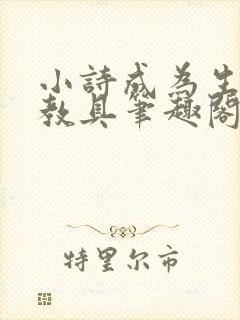 小詩成為生
教具筆趣閣
特里尔市